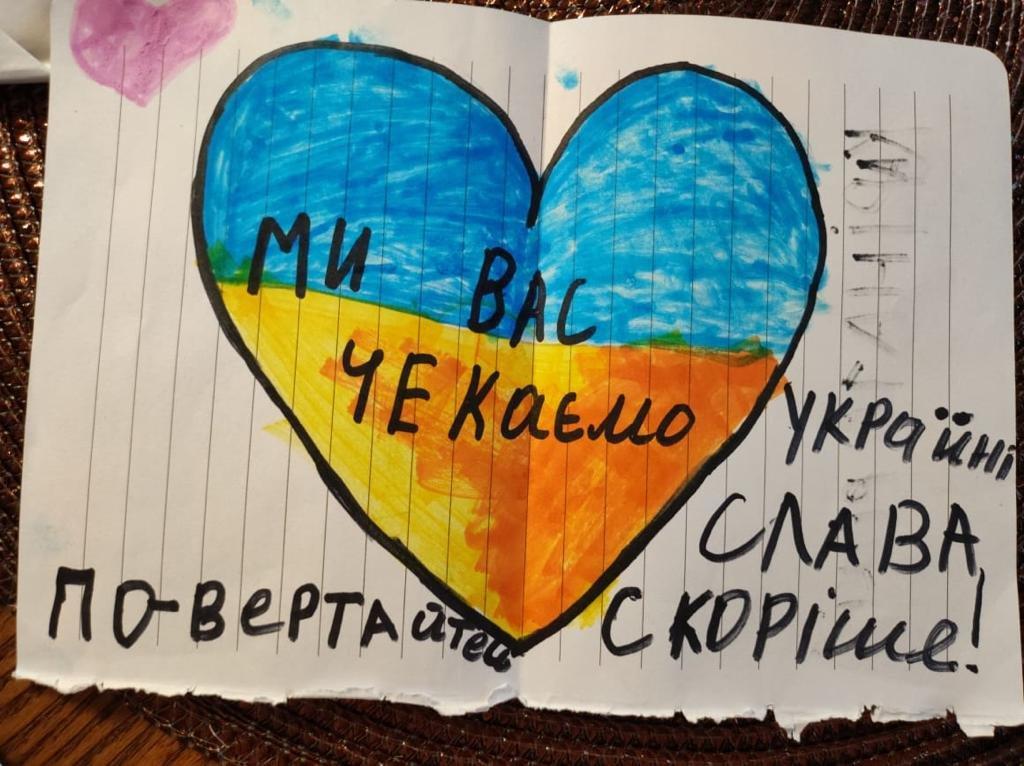 МИ ВАС
ЧЕКАЄМО
УКРАЇЙНІ
СЛАВА
ПО-ВЕРТАЙТЕСЬ СКОРІШЕ!